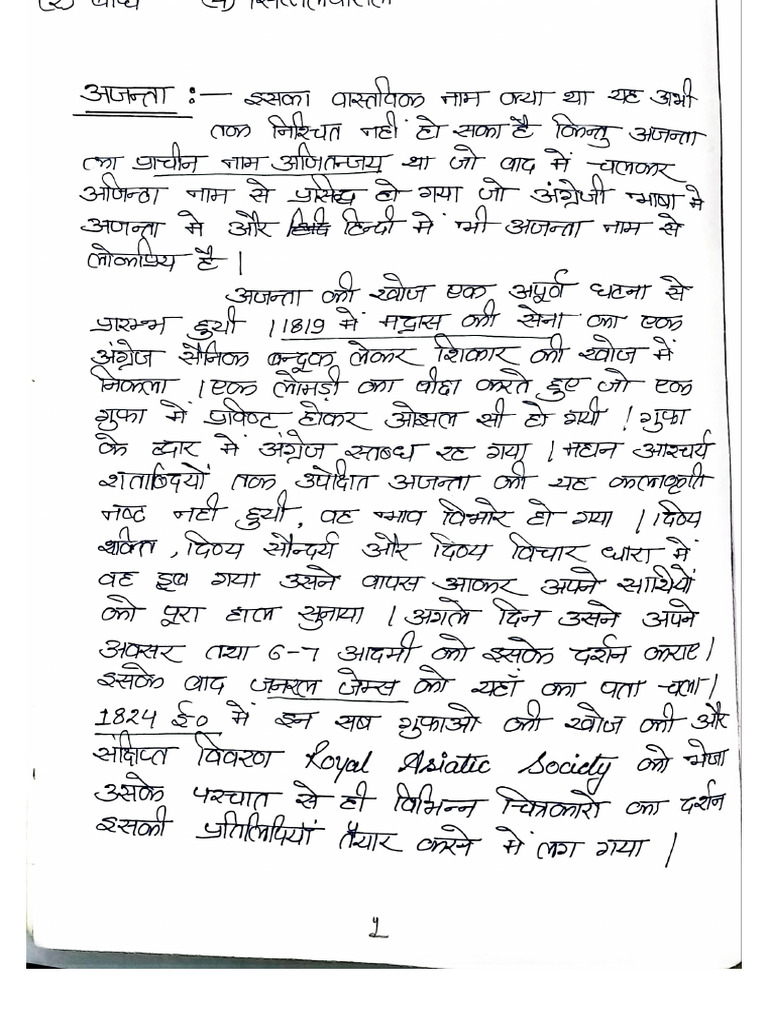 (2) बाघ (4) सित्तलवासल
अजन्ता :— इसका वास्तविक नाम क्या था यह अभी
तक निश्चित नहीं हो सका है किन्तु अजन्ता
का प्राचीन नाम अजितन्जय था जो बाद में चलकर
अजिन्ठा नाम से प्रसिद्ध हो गया जो अंग्रेजी भाषा मे
अजन्ता मे और हिन्दी में भी अजन्ता नाम से
लोकप्रिय है।
अजन्ता की खोज एक अपूर्व घटना से
प्रारम्भ हुयी । 1819 में मद्रास की सेना का एक
अंग्रेज सैनिक बन्दूक लेकर शिकार की खोज में
निकला । एक लोमड़ी का पीछा करते हुए जो एक
गुफा में प्रविष्ट होकर ओझल सी हो गयी । गुफा
के द्वार में अंग्रेज स्तब्ध रह गया । महान आश्चर्य
शताब्दियों तक उपेक्षित अजन्ता की यह कलाकृति
नष्ट नही हुयी, वह भाव विभोर हो गया । दिव्य
शक्ति, दिव्य सौन्दर्य और दिव्य विचार धारा में
वह डूब गया उसने वापस आकर अपने साथियों
को पूरा हाल सुनाया । अगले दिन उसने अपने
अफसर तथा 6-7 आदमी को इसके दर्शन कराए।
इसके बाद जनरल जेम्स को यहाँ का पता चला।
1824 ई० में इन सब गुफाओ की खोज की और
संक्षिप्त विवरण Royal Asiatic Society को भेजा
उसके पश्चात से ही विभिन्न चित्रकारो का दर्शन
इसकी प्रतिलिपियाँ तैयार करने में लग गया ।
1